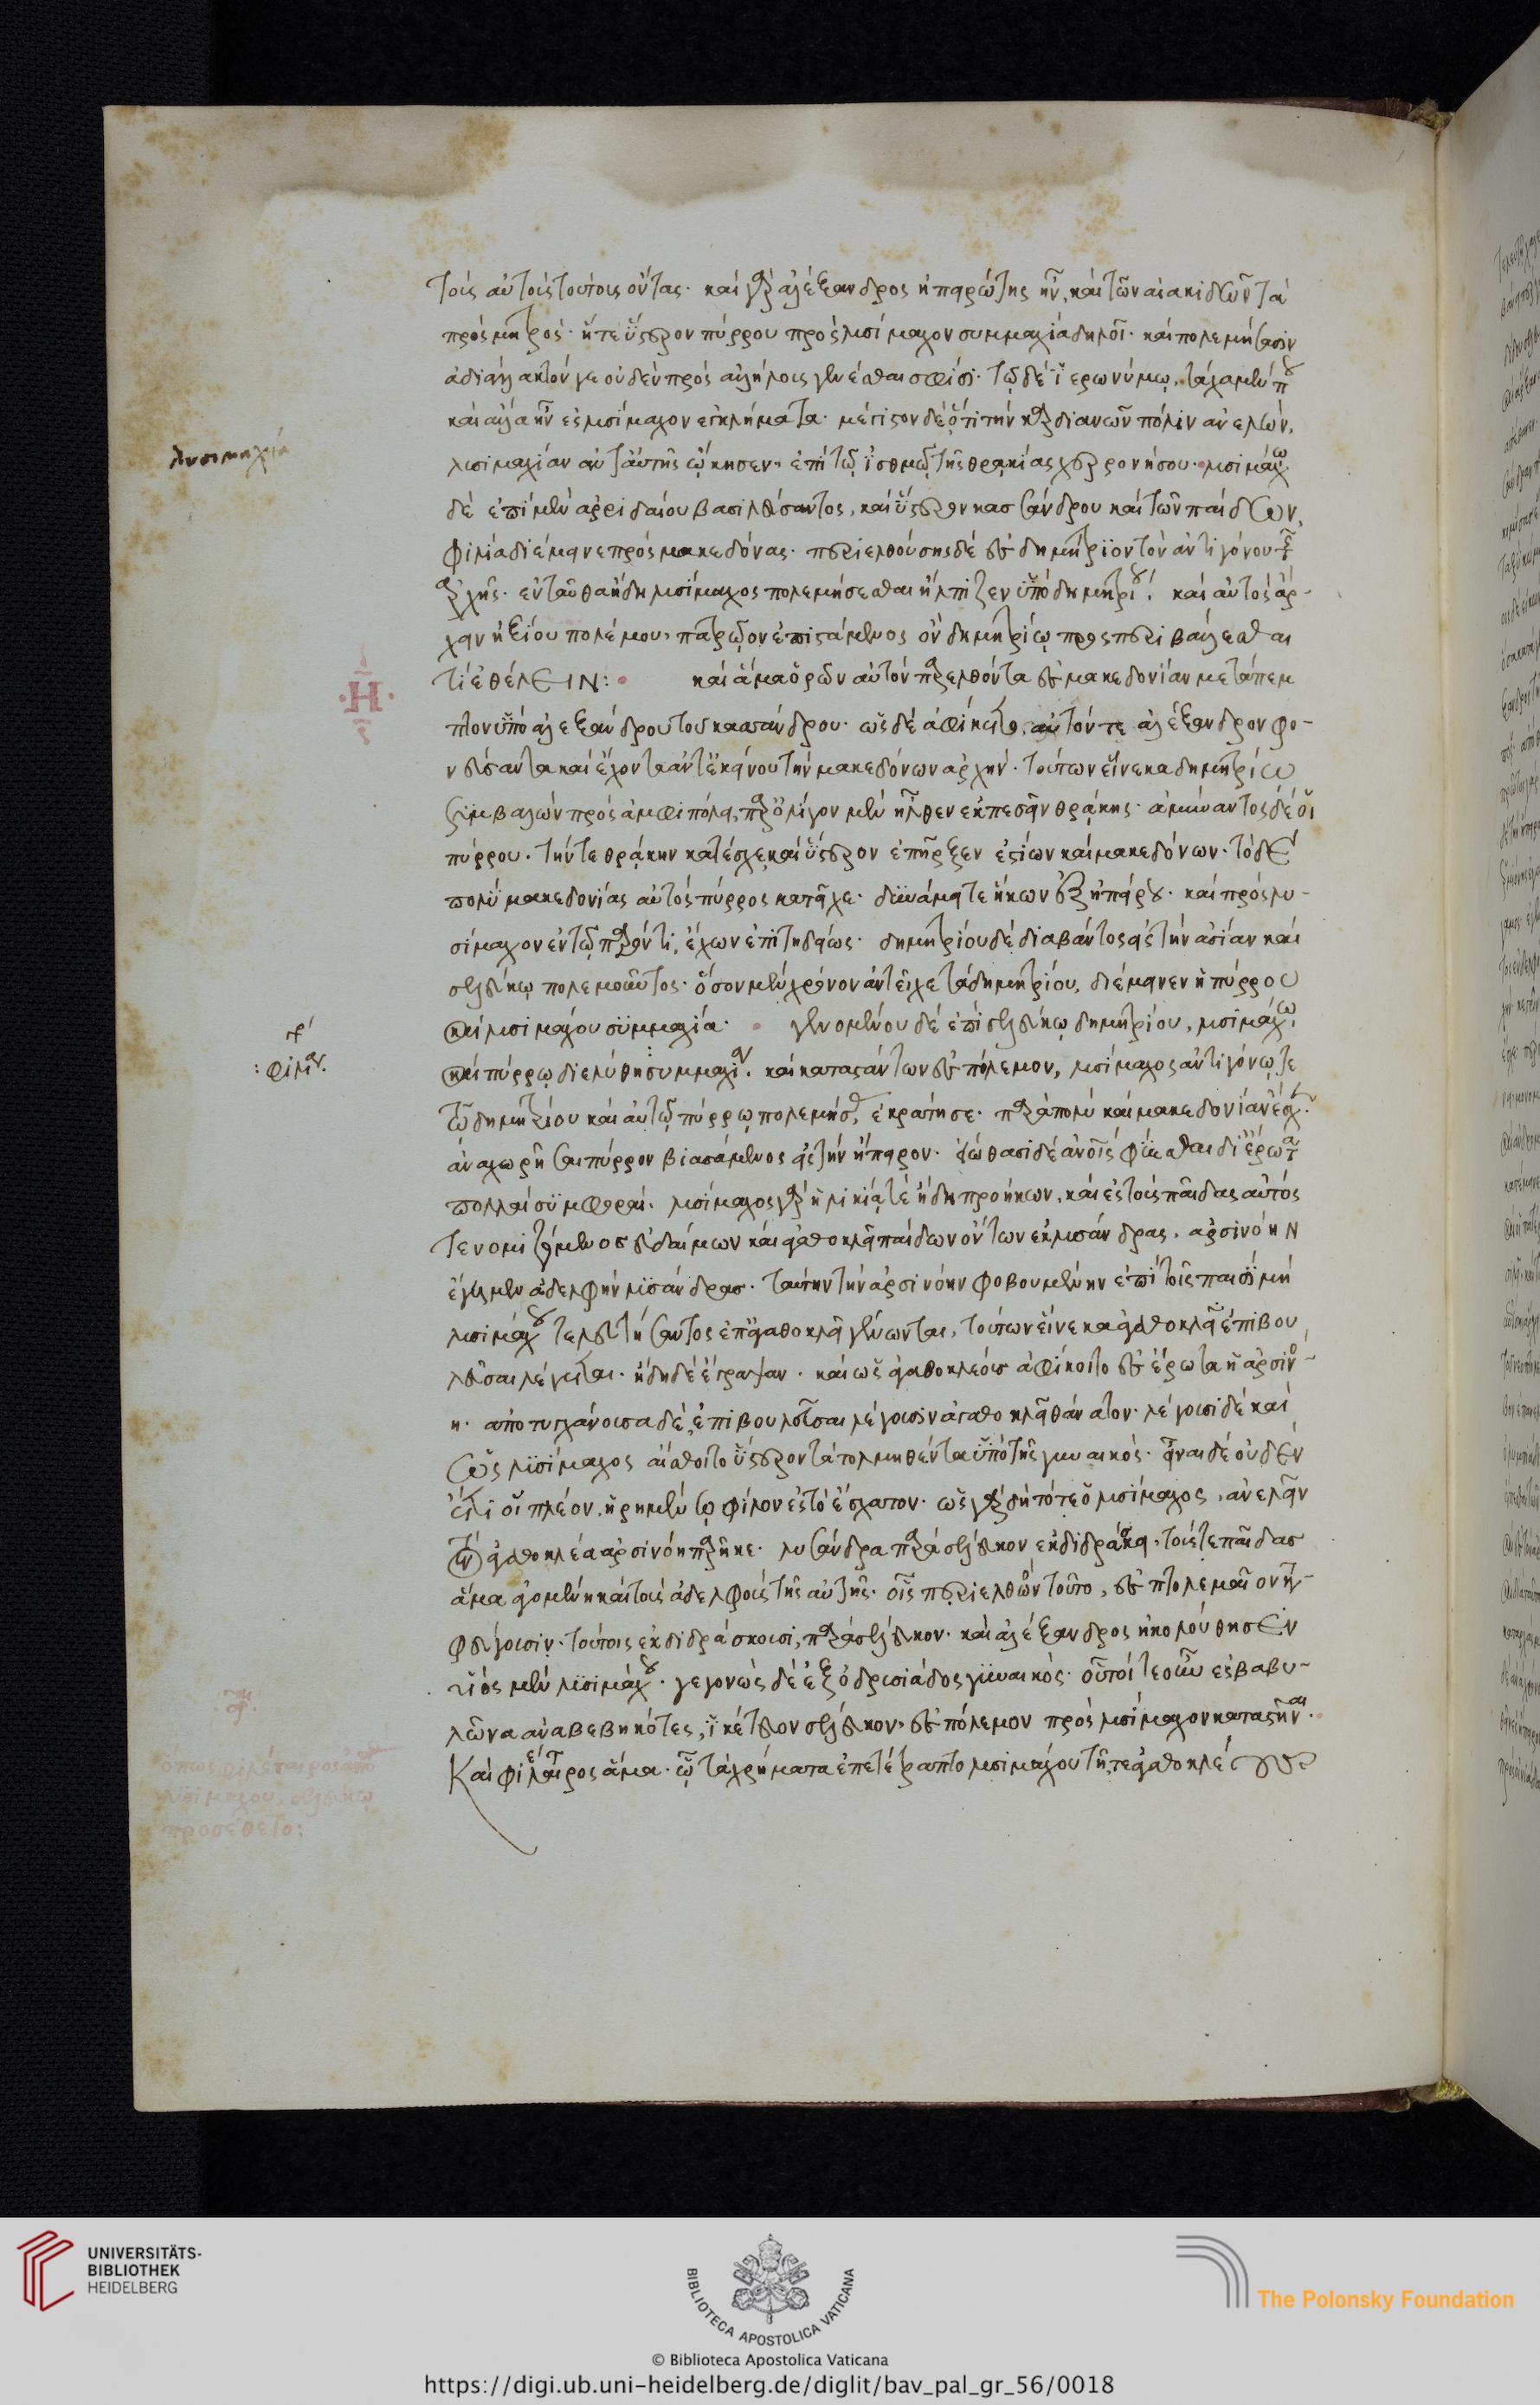 τοῖς αὐτοῖς τούτοις ὄντας· καὶ γὰρ ἀλέξανδρος ἠπειρώτης ἦν, καὶ τῶν αἰακιδῶν τὰ
πρὸς μητρός· ἥ τε ὕστερον πύρρου πρὸς λυσίμαχον συμμαχία δηλοῖ· καὶ πολεμήσασιν
ἀδιάλλακτόν γε οὐδὲν πρὸς ἀλλήλους γενέσθαι σφίσι· τῷ δὲ ἱερωνύμῳ, τάχα μέν που
καὶ ἄλλα ἦν ἐς λυσίμαχον ἐγκλήματα· μέγιστον δὲ ὅτι τὴν καρδιανῶν πόλιν ἀνελών,
λυσιμαχίαν ἀντ' αὐτῆς ᾤκησεν, ἐπὶ τῷ ἰσθμῷ τῆς θρᾳκίας χερρονήσου· λυσιμάχῳ
δὲ ἐπὶ μὲν ἀρειδαίου βασιλεύσαντος, καὶ ὕστερον κασσάνδρου καὶ τῶν παίδων,
φιλία διέμεινε πρὸς μακεδόνας· περιελθούσης δὲ ἐς δημήτριον τὸν ἀντιγόνου τῆς
ἀρχῆς· ἐνταῦθα ἤδη λυσίμαχος πολεμήσεσθαι ἤλπιζεν ὑπὸ δημητρίου· καὶ αὐτὸς ἄρ-
χειν ἠξίου πολέμου, πατρῷον ἐπιστάμενος ὂν δημητρίῳ προσπεριβάλλεσθαι
τί ἐθέλειν: καὶ ἅμα ὁρῶν αὐτὸν παρελθόντα ἐς μακεδονίαν μετάπεμ
πτον ὑπὸ ἀλεξάνδρου τοῦ κασσάνδρου· ὡς δὲ ἀφίκετο, αὐτόν τε ἀλέξανδρον φο-
νεύσαντα καὶ ἔχοντα ἀντ' ἐκείνου τὴν μακεδόνων ἀρχήν· τούτων εἵνεκα δημητρίῳ
συμβαλὼν πρὸς ἀμφιπόλει, παρ' ὀλίγον μὲν ἦλθεν ἐκπεσεῖν θρᾴκης· ἀμύναντος δέ οἱ
πύρρου· τήν τε θρᾴκην κατέσχε, καὶ ὕστερον ἐπῆρξεν ἑστίων καὶ μακεδόνων· τὸ δὲ
πολὺ μακεδονίας αὐτὸς πύρρος κατεῖχε· δυνάμει τε ἥκων ἐξ ἠπείρου· καὶ πρὸς λυ-
σίμαχον ἐν τῷ παρόντι, ἔχων ἐπιτηδείως· δημητρίου δὲ διαβάντος εἰς τὴν ἀσίαν καὶ
σελεύκῳ πολεμοῦντος· ὅσον μὲν χρόνον ἀντεῖχε τὰ δημητρίου, διέμεινεν ἡ πύρρου
καὶ λυσιμάχου συμμαχία· γενομένου δὲ ἐπὶ σελεύκῳ δημητρίου, λυσιμάχῳ
καὶ πύρρῳ διελύθη συμμαχία· καὶ καταστάντων ἐς πόλεμον, λυσίμαχος ἀντιγόνῳ τε
τῷ δημητρίου καὶ αὐτῷ πύρρῳ πολεμήσας, ἐκράτησε· παρὰ πολὺ καὶ μακεδονίαν ἔσχε·
ἀναχωρῆσαι πύρρον βιασάμενος εἰς τὴν ἤπειρον· εἰώθασι δὲ ἀνθρώποις φύεσθαι δι' ἔρωτα
πολλαὶ συμφοραί· λυσίμαχος γὰρ ἡλικίᾳ τε ἤδη προήκων, καὶ ἐς τοὺς παῖδας αὐτός
τε νομιζόμενος εὐδαίμων καὶ ἀγαθοκλεῖ παίδων ὄντων ἐκ λυσάνδρας, ἀρσινόην
ἔγημεν ἀδελφὴν λυσάνδρας· ταύτην τὴν ἀρσινόην φοβουμένην ἐπὶ τοῖς παισὶ μὴ
λυσιμάχου τελευτήσαντος ἐπ' ἀγαθοκλεῖ γένωνται, τούτων εἵνεκα ἀγαθοκλεῖ ἐπιβου
λεῦσαι λέγεται· ἤδη δὲ ἔγραψαν· καὶ ὡς ἀγαθοκλέους ἀφίκοιτο ἐς ἔρωτα ἡ ἀρσινό-
η· ἀποτυγχάνουσα δέ, ἐπιβουλεῦσαι λέγουσιν ἀγαθοκλεῖ θάνατον· λέγουσι δὲ καὶ
ὡς λυσίμαχος αἴσθοιτο ὕστερον τὰ τολμηθέντα ὑπὸ τῆς γυναικός· εἶναι δὲ οὐδὲν
ἔτι οἱ πλέον, ἠρημωμένῳ φίλων ἐς τὸ ἔσχατον· ὡς γὰρ δὴ τότε ὁ λυσίμαχος, ἀνελεῖν
τὸν ἀγαθοκλέα ἀρσινόῃ παρῆκε· λυσάνδρα παρὰ σέλευκον ἐκδιδράσκει, τούς τε παῖδας
ἅμα ἀγομένη καὶ τοὺς ἀδελφοὺς τῆς αὑτῆς· οἷς περιελθὸν τοῦτο, ἐς πτολεμαῖον κατα-
φεύγουσιν· τούτοις ἐκδιδράσκουσι, παρὰ σέλευκον· καὶ ἀλέξανδρος ἠκολούθησεν
υἱὸς μὲν λυσιμάχου· γεγονὼς δὲ ἐξ ὀδρυσιάδος γυναικός· οὗτοί τε οὖν ἐς βαβυ-
λῶνα ἀναβεβηκότες, ἱκέτευον σέλευκον, ἐς πόλεμον πρὸς λυσίμαχον καταστῆναι·
Καὶ φιλέταιρος ἅμα· ᾧ τὰ χρήματα ἐπετέτραπτο λυσιμάχου τῇ τε ἀγαθοκλέους
λυσιμαχία
·Η·
ὅπως φιλέταιρος ἀπὸ
λυσιμάχου, σελεύκῳ
προσέθετο:
UNIVERSITÄTS-
BIBLIOTHEK
HEIDELBERG
BIBLIOTECA APOSTOLICA VATICANA
The Polonsky Foundation
© Biblioteca Apostolica Vaticana
https://digi.ub.uni-heidelberg.de/diglit/bav_pal_gr_56/0018